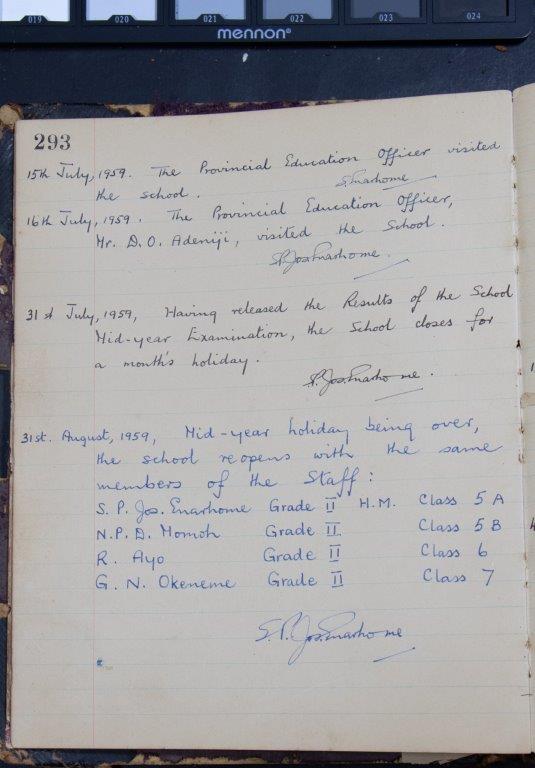 019 020 021 022 023 024
mennon®
293
15th July, 1959. The Provincial Education Officer visited
the school.
S. Enarhome
16th July, 1959. The Provincial Education Officer,
Mr. D. O. Adeniji, visited the School.
S.P. Jos. Enarhome.
31st July, 1959, Having released the Results of the School
Mid-year Examination, the School closes for
a month's holiday.
S.P. Jos. Enarhome.
31st. August, 1959, Mid-year holiday being over,
the school reopens with the same
members of the Staff:
S. P. Jos. Enarhome Grade II H.M. Class 5 A
N.P.D. Momoh Grade II Class 5 B
R. Ayo Grade II Class 6
G. N. Okeneme Grade II Class 7
S.P. Jos. Enarhome